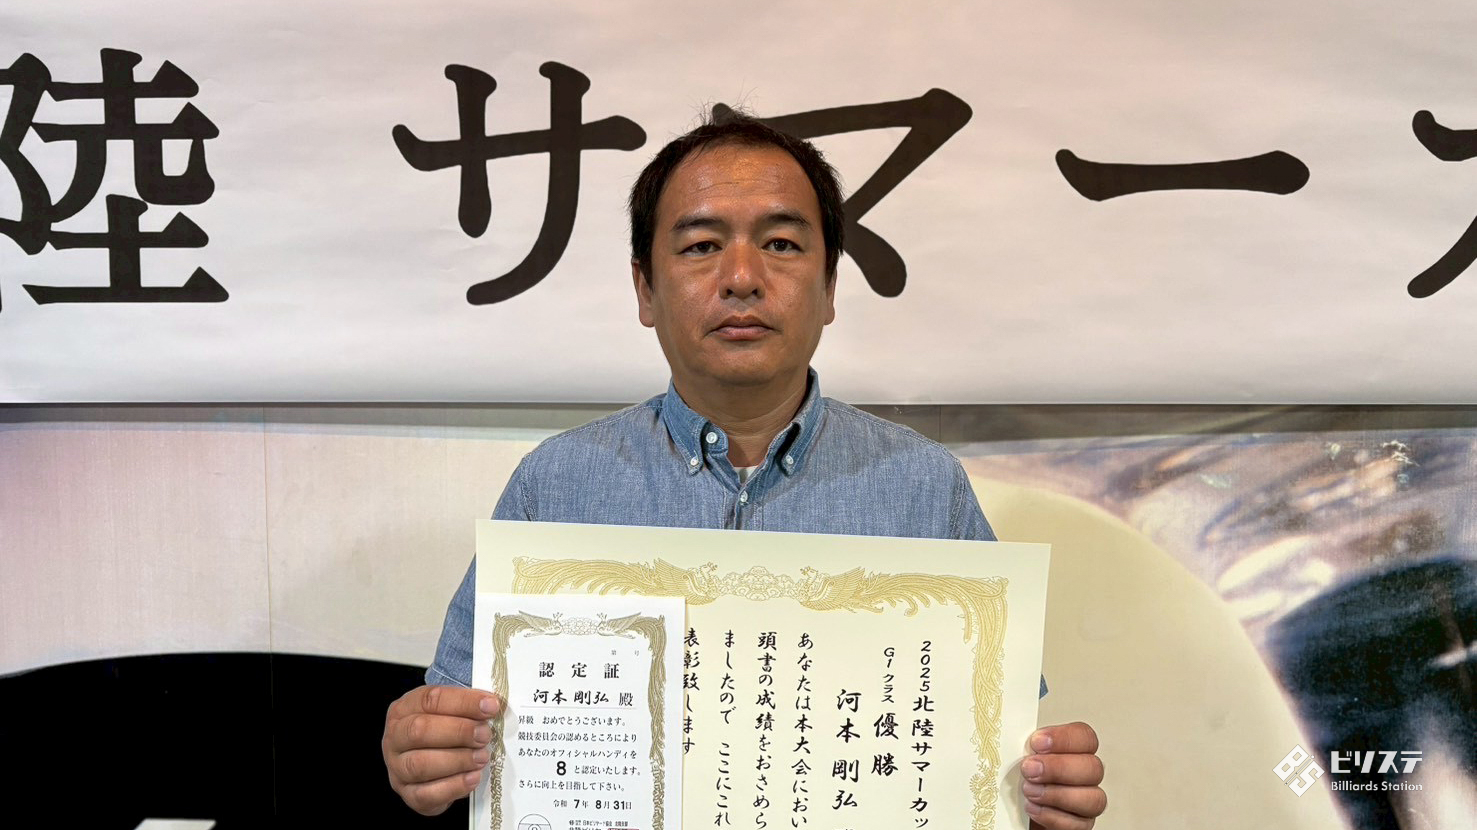 陸サマーカ
2025北陸サマーカッ
G1クラス 優勝
河本剛弘
あなたは本大会におい
頭書の成績をおさめら
ましたので ここにこれ
表彰致します
第 号
認定証
河本剛弘 殿
昇級 おめでとうございます。
競技委員会の認めるところにより
あなたのオフィシャルハンディを
8 と認定いたします。
さらに向上を目指して下さい。
令和 7年 8月31日
ビリステ
Billiards Station